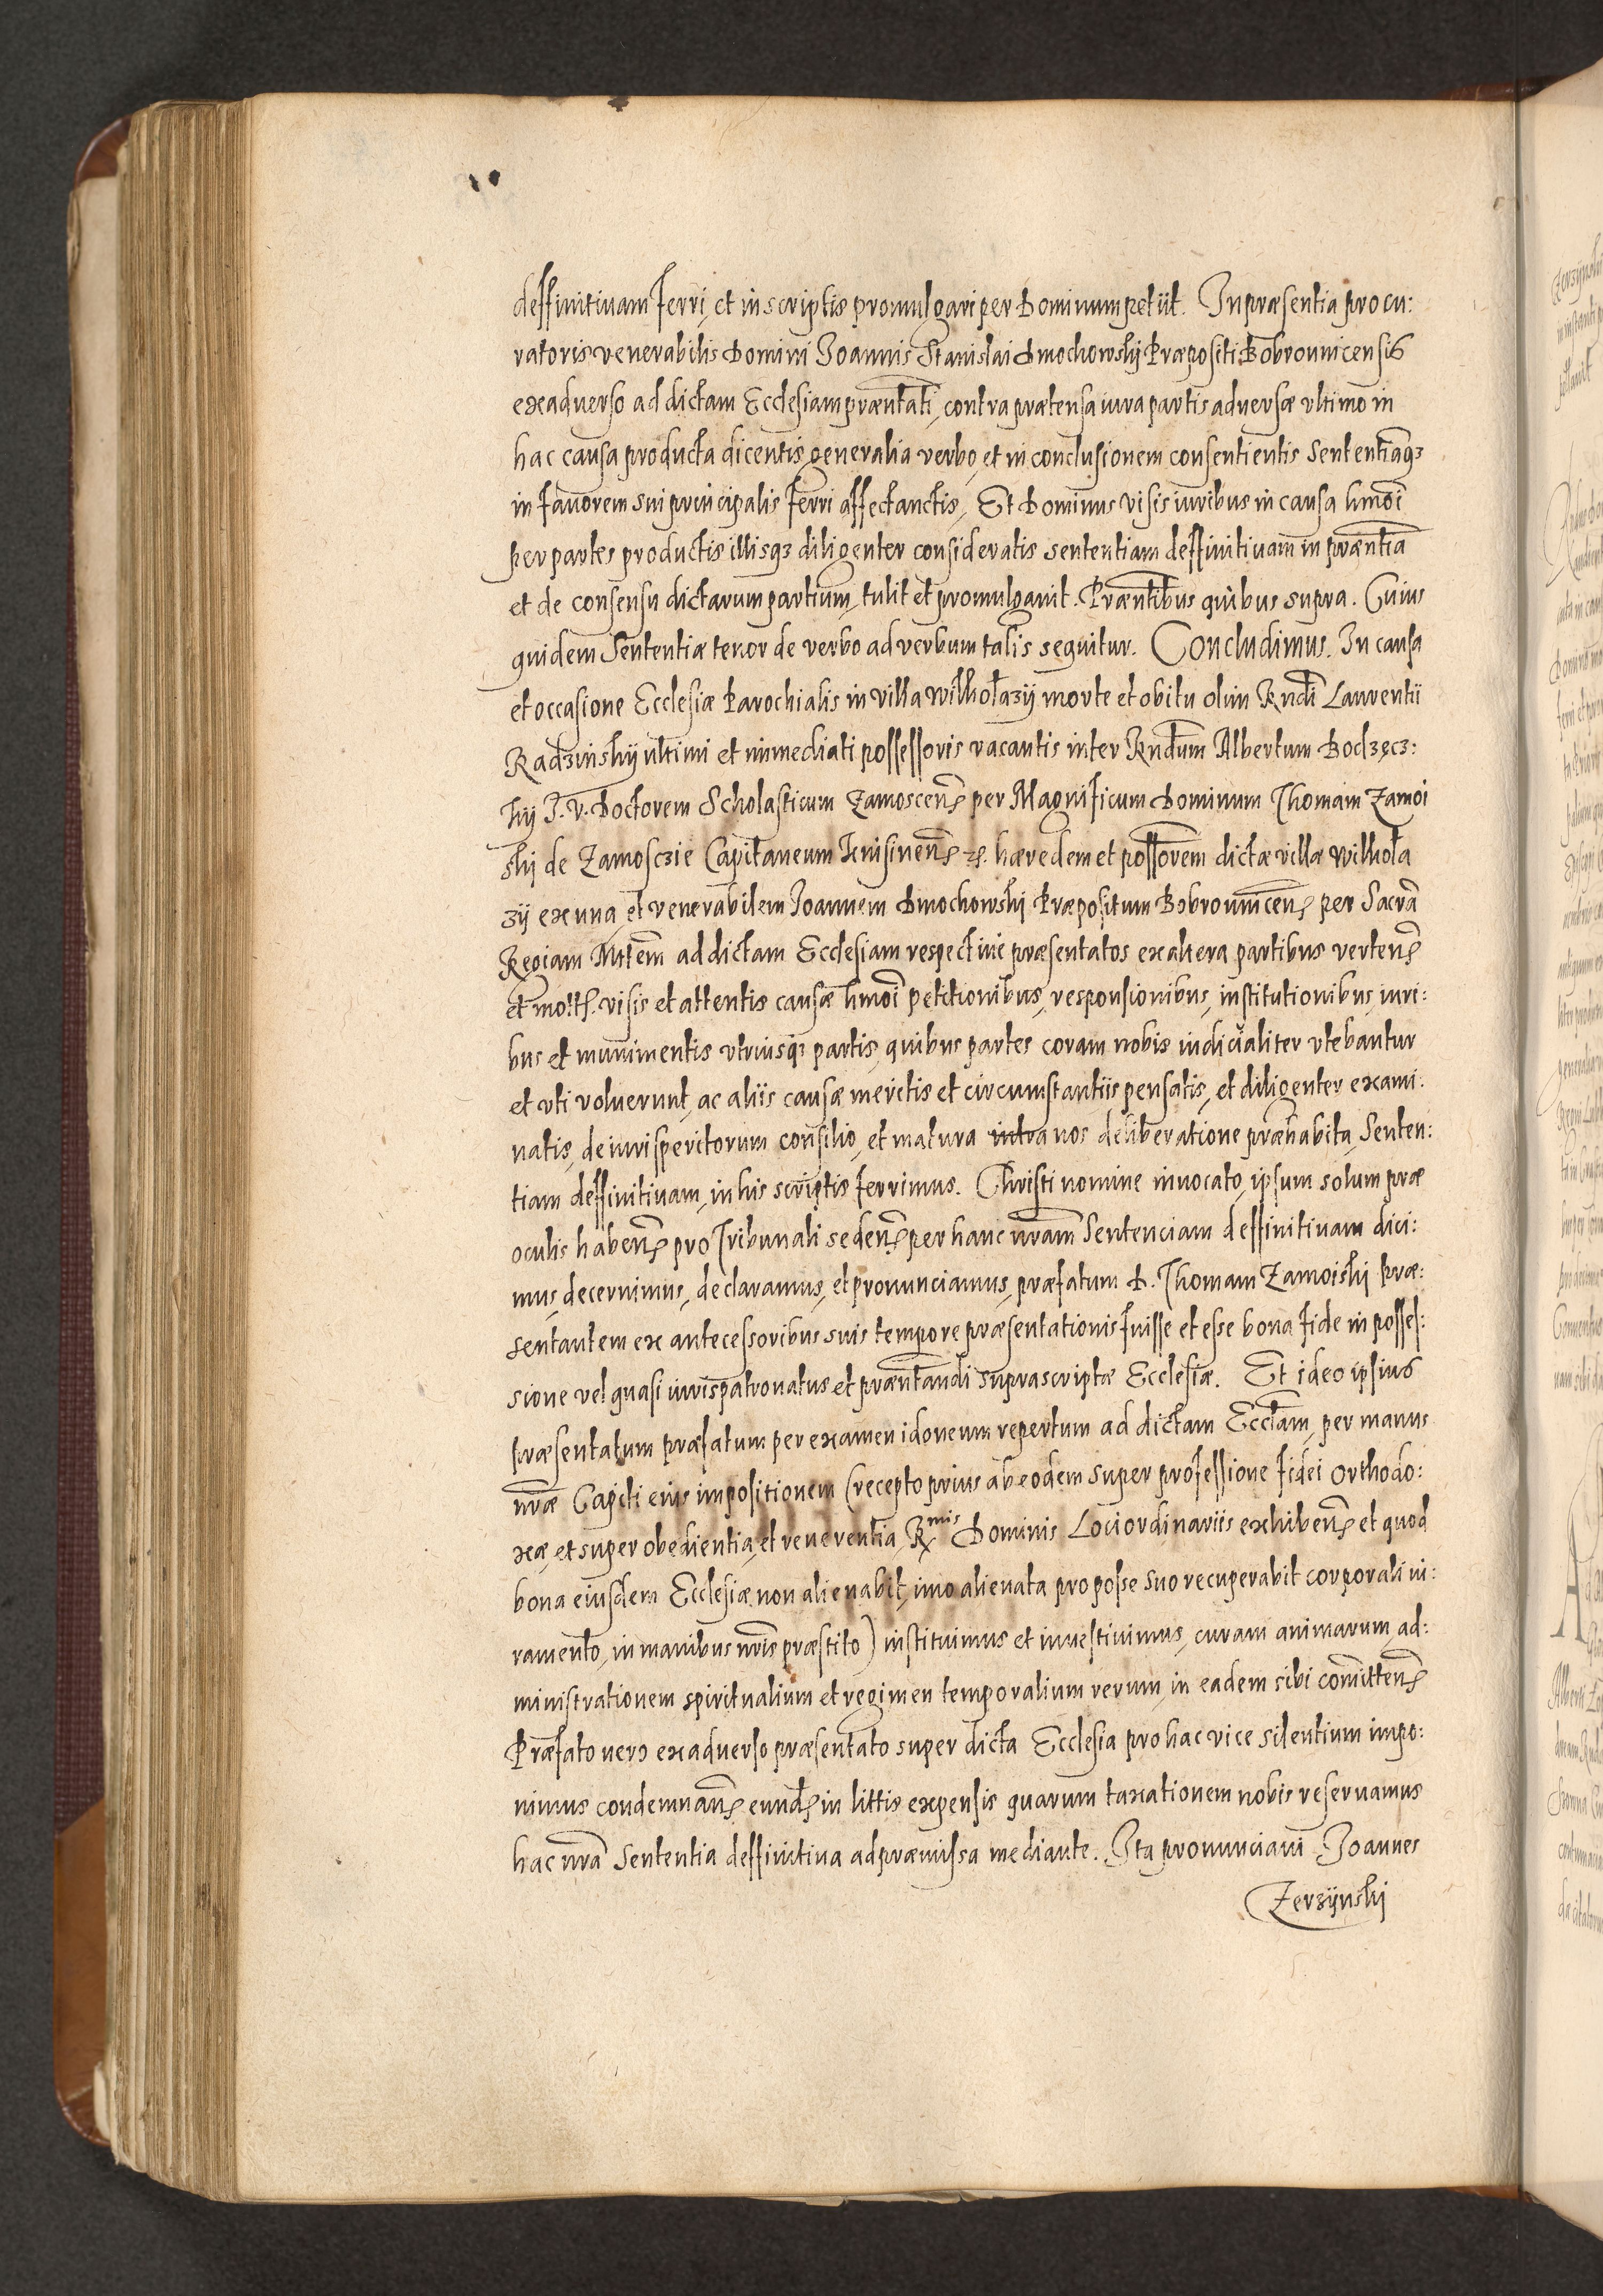 deffinitiuam ferri, et in scriptis promulgari per Dominum petijt. In præsentia procu:
ratoris venerabilis Domini Joannis Stanislai Dmochowskij Præpositi Bobrounicensis
exaduerso ad dictam Ecclesiam præntati, contra prætensa iura partis aduersæ vltimo in
hac causa producta dicentis generalia verbo, et in conclusionem consentientis Sententiāqꝫ
in fauorem sui principalis ferri affectanctis, Et Dominus visis iuribus in causa hmōi
per partes productis illisqꝫ diligenter consideratis sententiam deffinitiuam in præntia
et de consensu dictarum partium, tulit et promulgauit. Præntibus quibus supra. Cuius
quidem Sententiæ tenor de verbo ad verbum talis sequitur. Concludimus. In causa
et occasione Ecclesiæ Parochialis in villa Wilkołazij morte et obitu olim Rndi Laurentii
Radzinskij ultimi et immediati possessoris vacantis inter Rndum Albertum Bodzęcz:
kij J. V. Doctorem Scholasticum Zamoscens per Magnificum Dominum Thomam Zamoi
skj de Zamosczie Capitaneum Knisinens etc. hæredem et possorem dictæ villæ Wilkoła
zij ex una, et venerabilem Joannem Dmochowskj Præpositum Bobrounicens per Sacrā
Regiam Mtem ad dictam Ecclesiam respectiue præsentatos ex altera partibus vertens
et mot: visis et attentis causæ hmōi petitionibus, responsionibus, institutionibus, iuri:
bus et munimentis vtriusqꝫ partis, quibus partes coram nobis iudicialiter vtebantur
et vti voluerunt, ac aliis causæ meritis et circumstantiis pensatis, et diligenter exami:
natis, de iurisperitorum consilio, et matura intra nos deliberatione præhabita, Senten:
tiam deffinitiuam, in his scriptis ferrimus. Christi nomine inuocato, ipsum solum præ
oculis habens pro Tribunali sedens per hanc nram Sentenciam deffinitiuam dici:
mus, decernimus, declaramus, et pronunciamus, præfatum D. Thomam Zamoiskj Præ:
sentantem ex antecessoribus suis tempore præsentationis fuisse et esse bona fide in posses:
sione vel quasi iurispatronatus et præntandi suprascriptæ Ecclesiæ. Et ideo ipsius
præsentatum præfatum per examen idoneum repertum ad dictam Ecclam, per manus
nræ Capiti eius impositionem (recepto prius ab eodem super professione fidei orthodo:
xæ, et super obedientia, et reuerentia, Rmis Dominis Loci ordinariis exhibens et quod
bona eiusdem Ecclesiæ non alienabit, imo alienata pro posse suo recuperabit corporali iu:
ramento, in manibus nris præstito) instituimus et inuestiuimus, curam animarum, ad:
ministrationem spiritualium et regimen temporalium rerum, in eadem sibi comittens
Præfato vero exaduerso præsentato super dicta Ecclesia pro hac vice silentium impo:
nimus condemnans eund in littis expensis quarum taxationem nobis reseruamus
hac nra Sententia deffinitiua ad præmissa mediante. Ita pronunciaui Joannes
Zerzijnskj